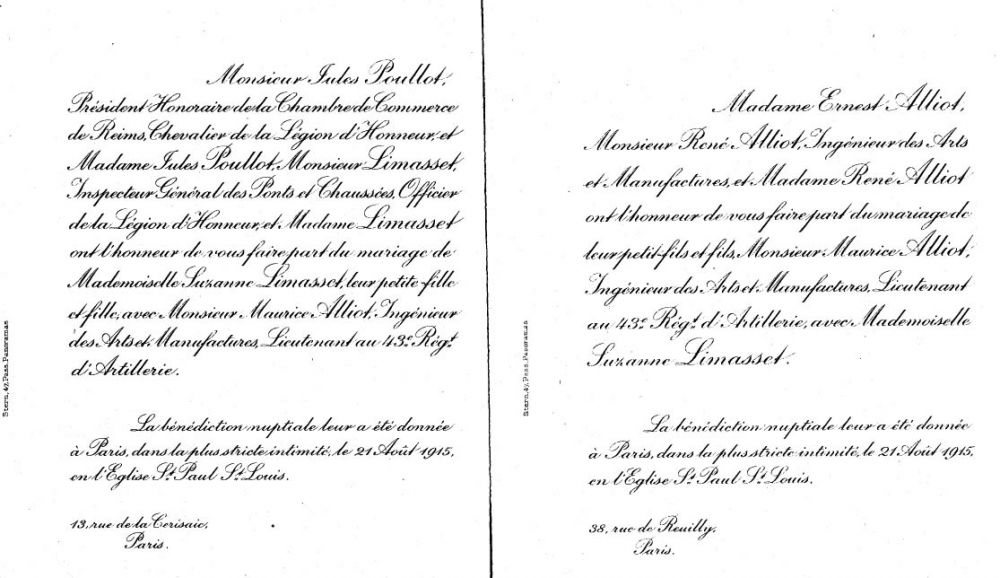 Monsieur Jules Poullot,
Président Honoraire de la Chambre de Commerce
de Reims, Chevalier de la Légion d'Honneur, et
Madame Jules Poullot, Monsieur Limasset,
Inspecteur Général des Ponts et Chaussées, Officier
de la Légion d'Honneur, et Madame Limasset
ont l'honneur de vous faire part du mariage de
Mademoiselle Suzanne Limasset, leur petite-fille
et fille, avec Monsieur Maurice Alliot, Ingénieur
des Arts et Manufactures, Lieutenant au 43e Régt
d'Artillerie.
La bénédiction nuptiale leur a été donnée
à Paris, dans la plus stricte intimité, le 21 Août 1915,
en l'Eglise St Paul St Louis.
13, rue de la Cerisaie,
Paris.
Stern, 47, Pass. Panoramas
Madame Ernest Alliot,
Monsieur René Alliot, Ingénieur des Arts
et Manufactures, et Madame René Alliot
ont l'honneur de vous faire part du mariage de
leur petit-fils et fils, Monsieur Maurice Alliot,
Ingénieur des Arts et Manufactures, Lieutenant
au 43e Régt d'Artillerie, avec Mademoiselle
Suzanne Limasset.
La bénédiction nuptiale leur a été donnée
à Paris, dans la plus stricte intimité, le 21 Août 1915,
en l'Eglise St Paul St Louis.
38, rue de Reuilly,
Paris.
Stern, 47, Pass. Panoramas